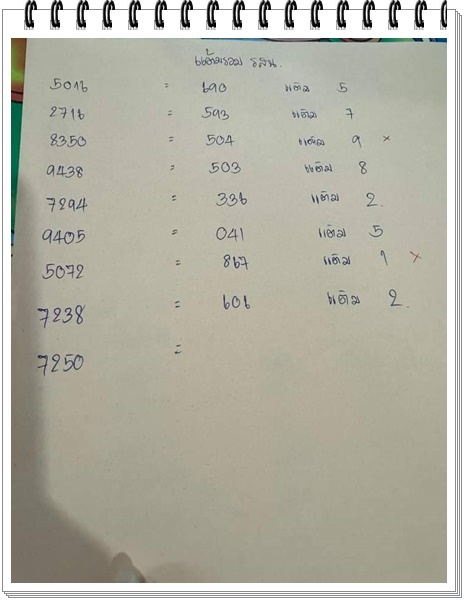 แต้มรวม รสน.
5016 = 690 แต้ม 5
2716 = 593 แต้ม 7
8350 = 504 แต้ม 9 ×
9438 = 503 แต้ม 8
7294 = 336 แต้ม 2.
9405 = 041 แต้ม 5
5072 = 867 แต้ม 1 ×
7238 = 606 แต้ม 2.
7250 =